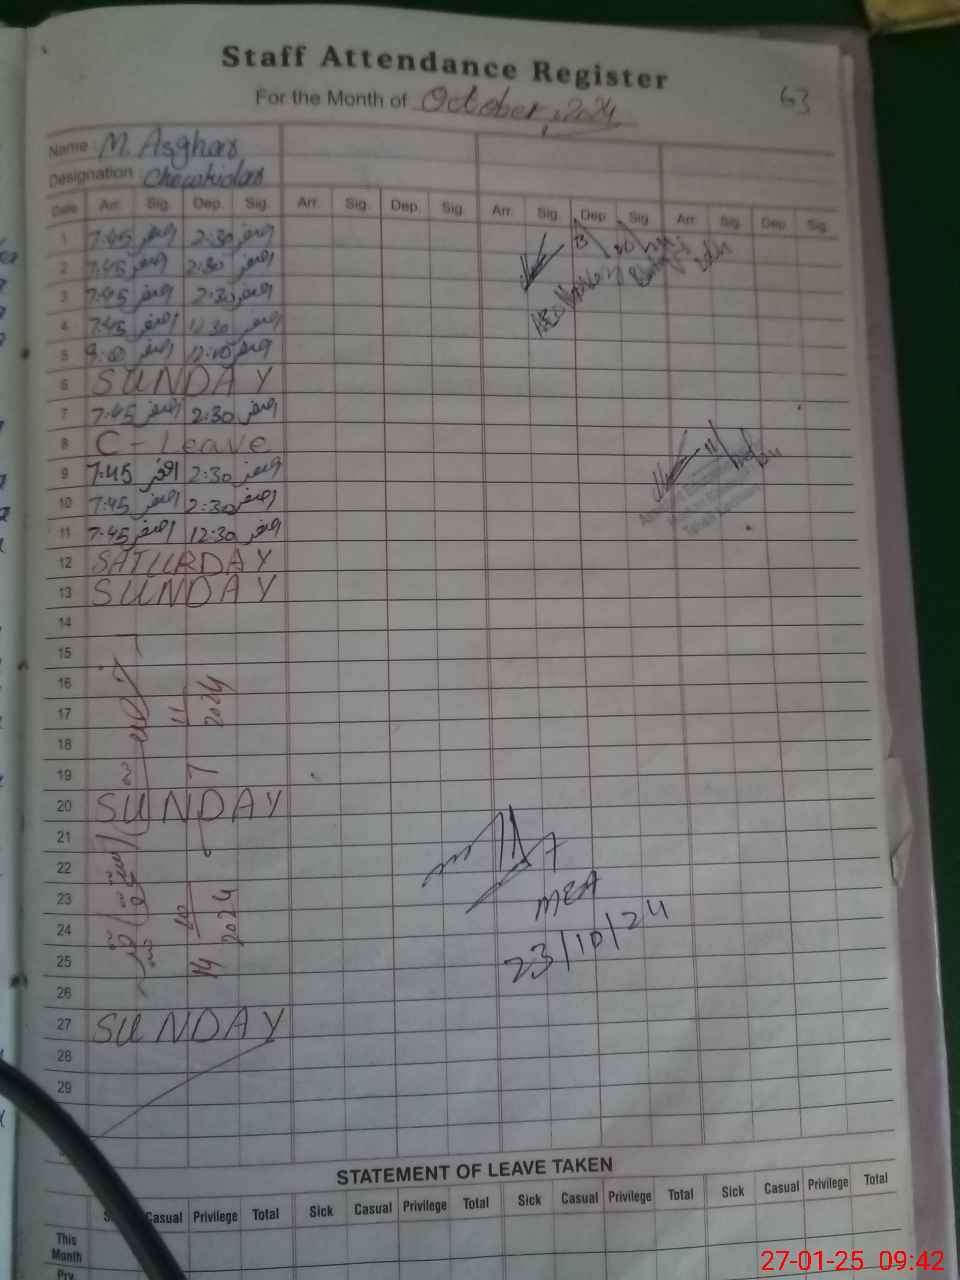 Staff Attendance Register
For the Month of October, 2024
63
Name M. Asghar
Designation Chowkidar
Date Arr. Sig. Dep. Sig. Arr. Sig. Dep. Sig. Arr. Sig. Dep Sig. Arr. Sig. Dep Sig.
1 7:45 اصغر 2:30 اصغر
2 7:45 اصغر 2:30 اصغر
3 7:45 اصغر 2:30 اصغر
4 7:45 اصغر 12:30 اصغر
5 اصغر اصغر
6 SUNDAY
7 7:45 اصغر 2:30 اصغر
8 C - Leave
9 7:45 اصغر 2:30 اصغر
10 7:45 اصغر 2:30 اصغر
11 7:45 اصغر 12:30 اصغر
12 SATURDAY
13 SUNDAY
14
15
16
17
18
19
20 SUNDAY
21
22
23
24
25
26
27 SUNDAY
28
29
14/10/2024
11/2024
MEA
23/10/24
STATEMENT OF LEAVE TAKEN
Casual Privilege Total Sick Casual Privilege Total Sick Casual Privilege Total Sick Casual Privilege Total
This Month
Prv
27-01-25 09:42